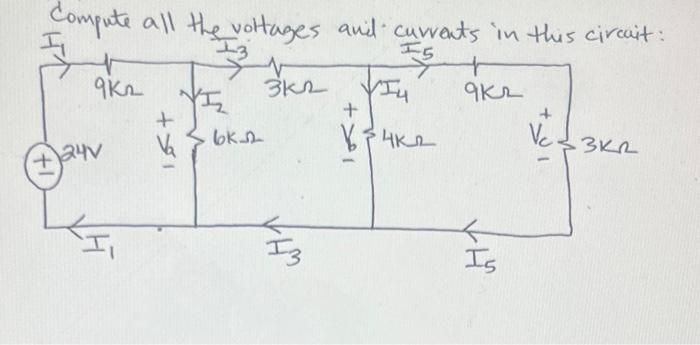 Compute all the voltages and currents in this circuit:
I1 I3 I5
9KΩ I2 3KΩ I4 9KΩ
+ + +
24V Va 6KΩ Vb 4KΩ Vc 3KΩ
+ - - - -
I1 I3 I5